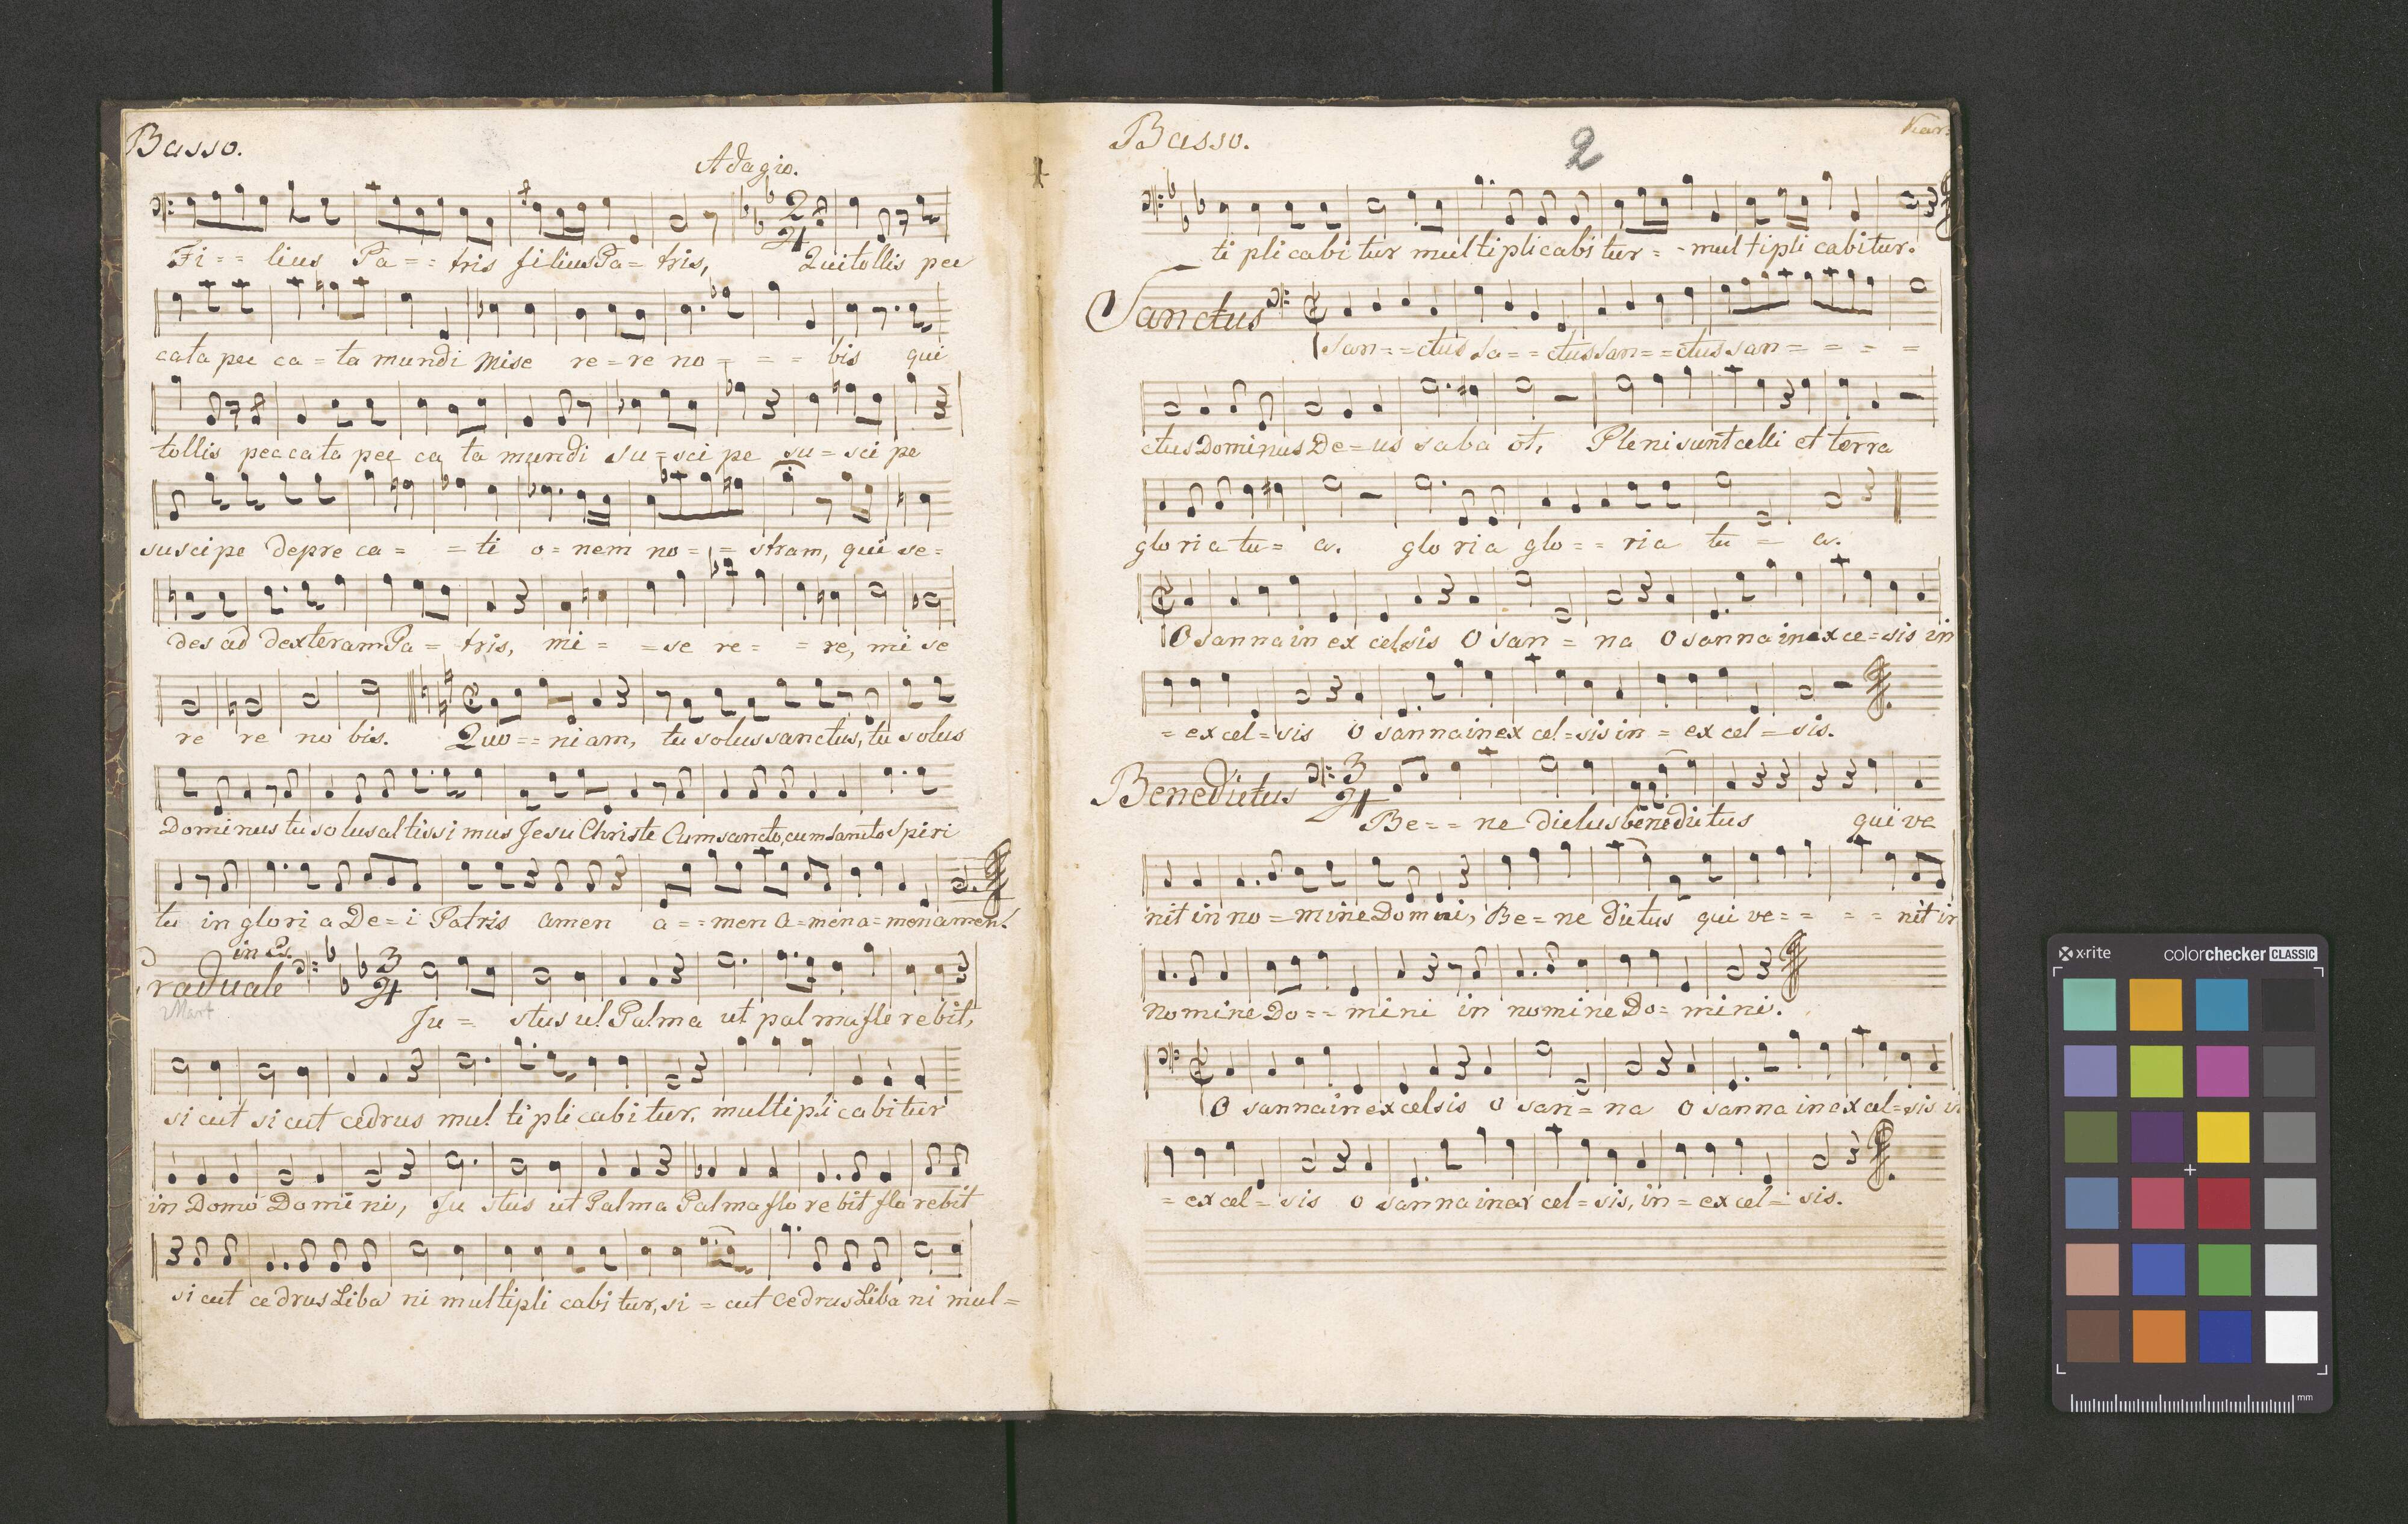 Basso.
Adagio.
2
4
Fi = = lius Pa = = tris filius Pa = tris, Qui tollis pec
cata pec ca = ta mundi Mise re = re no = = = bis qui
tollis peccata pec ca ta mundi su = sci pe su = sci pe
suscipe depre ca = = ti o = nem no = = stram, qui se =
des ad dexteram Pa = tris, mi = = se re = = re, mi se
re re no bis. Quo = = niam, tu solus sanctus, tu solus
Dominus tu solus altissimus Jesu Christe Cum sancto, cum sancto Spiri
tu in glori a De = i Patris amen a = = men a = men a = men amen.
in
Graduale
Mart
3
4
Ju = stus ut Palma ut palma flo rebit,
si cut si cut cedrus mul ti pli cabi tur, multipli cabi tur
in Domo Domi ni, Ju stus ut Palma Palma flo re bit flo rebit
si cut ce drus Liba ni multipli cabi tur, si = cut Cedrus Liba ni mul =
Basso.
2
ti pli cabi tur multiplicabi tur = = mul tipli cabitur.
Sanctus
San = = ctus Sa = = ctus san = = ctus san = = = =
ctus Dominus De = us saba ot, Pleni sunt celli et terra
glo ri a tu = a. glo ri a glo = = ria tu = a.
O sanna in ex celsis O san = na O sanna in ex ce = sis in
= ex cel = sis O sanna in ex cel = sis in = ex cel = sis.
Benedictus
3
4
Be = = ne dictus benedictus qui ve
nit in no = mine Domini, Be = ne dictus qui ve = = = = nit in
nomine Do = = mini in nomine Do = mini.
O sanna in excelsis O san = na O sanna in ex cel = sis in
= ex cel = sis O sanna in ex cel = sis, in = ex cel = sis.
x-rite
colorchecker CLASSIC
mm